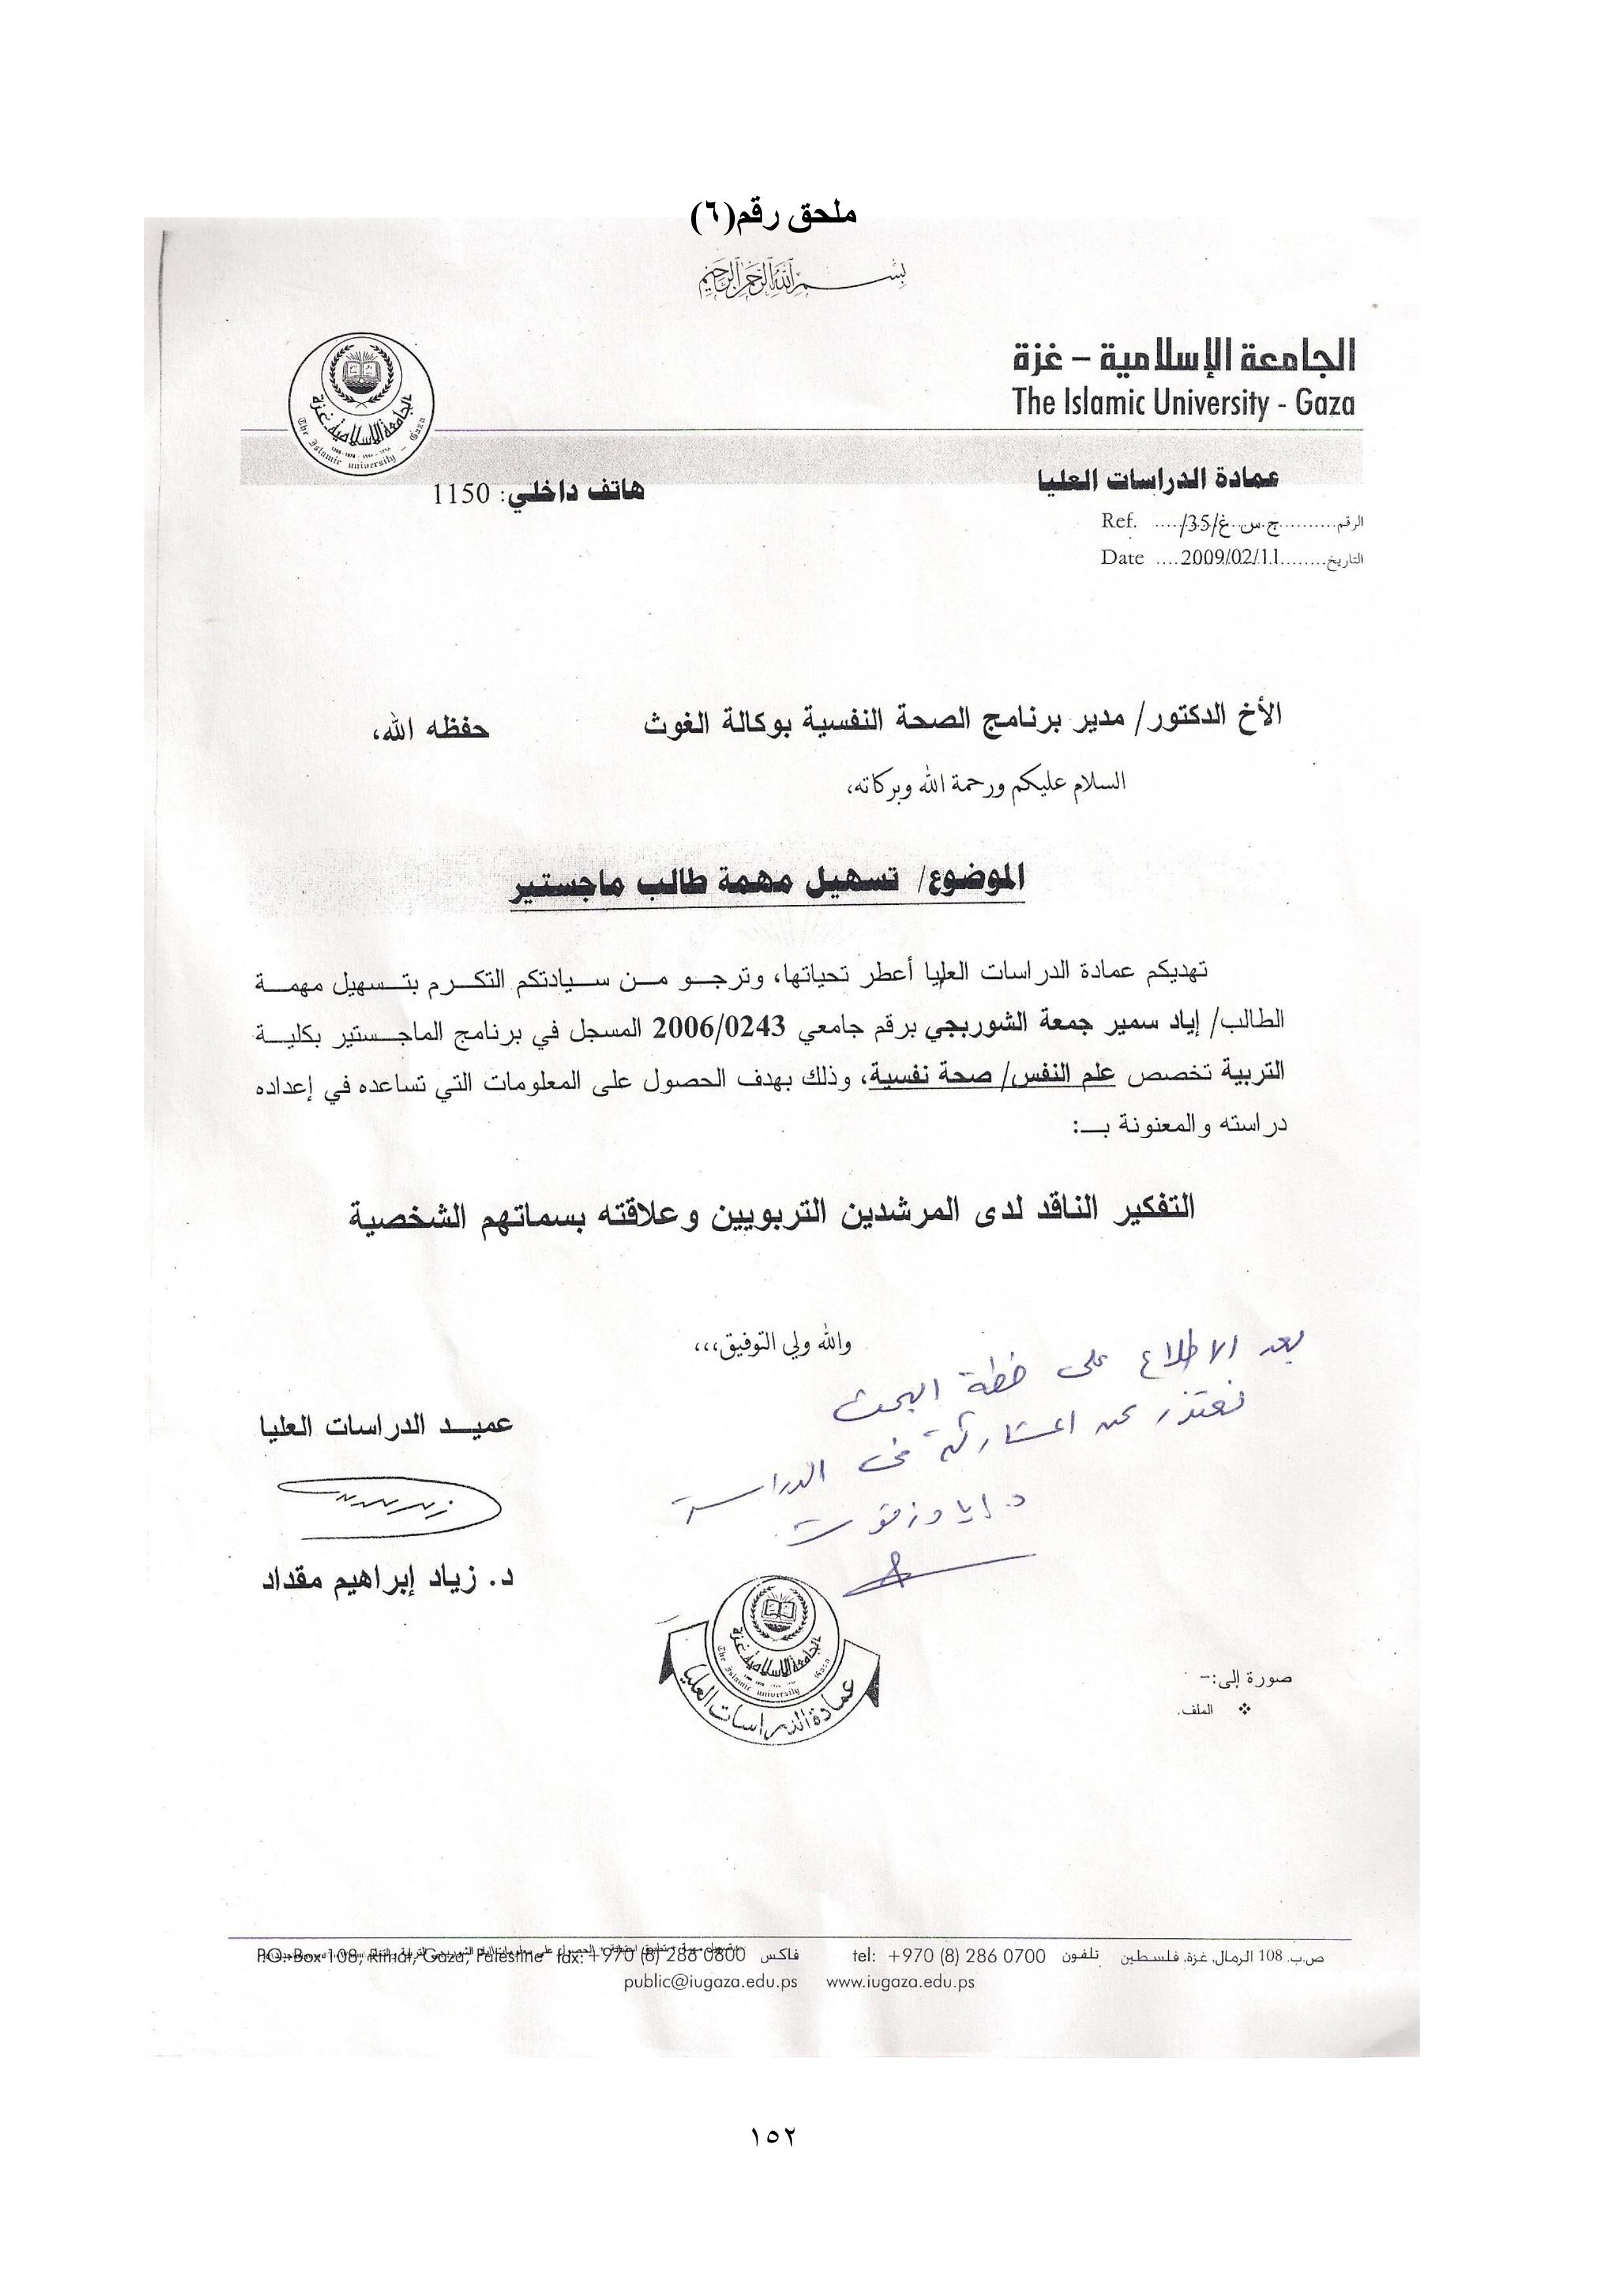 ملحق رقم(٦)
بسم الله الرحمن الرحيم
الجامعة الإسلامية – غزة
The Islamic University - Gaza
الجامعة الإسلامية غزة
The Islamic university - Gaza
عمادة الدراسات العليا
هاتف داخلي: 1150
الرقم..........ج س غ/35/..... Ref.
التاريخ........2009/02/11.... Date
الأخ الدكتور/ مدير برنامج الصحة النفسية بوكالة الغوث حفظه الله،
السلام عليكم ورحمة الله وبركاته،
الموضوع/ تسهيل مهمة طالب ماجستير
تهديكم عمادة الدراسات العليا أعطر تحياتها، وترجو من سيادتكم التكرم بتسهيل مهمة
الطالب/ إياد سمير جمعة الشوربجي برقم جامعي 2006/0243 المسجل في برنامج الماجستير بكلية
التربية تخصص علم النفس/ صحة نفسية، وذلك بهدف الحصول على المعلومات التي تساعده في إعداده
دراسته والمعنونة بـ:
التفكير الناقد لدى المرشدين التربويين وعلاقته بسماتهم الشخصية
والله ولي التوفيق،،،
بعد الاطلاع على خطة البحث
نعتذر عن المشاركة في الدراسة
د. إياد زقوت
عميد الدراسات العليا
د. زياد إبراهيم مقداد
الجامعة الإسلامية غزة
The Islamic university Gaza
عمادة الدراسات العليا
صورة إلى:-
❖ الملف.
ص.ب. 108 الرمال، غزة، فلسطين تلفون tel: +970 (8) 286 0700 فاكس fax: +970 (8) 286 0800 P.O. Box 108, Rimal, Gaza, Palestine
public@iugaza.edu.ps www.iugaza.edu.ps
١٥٢